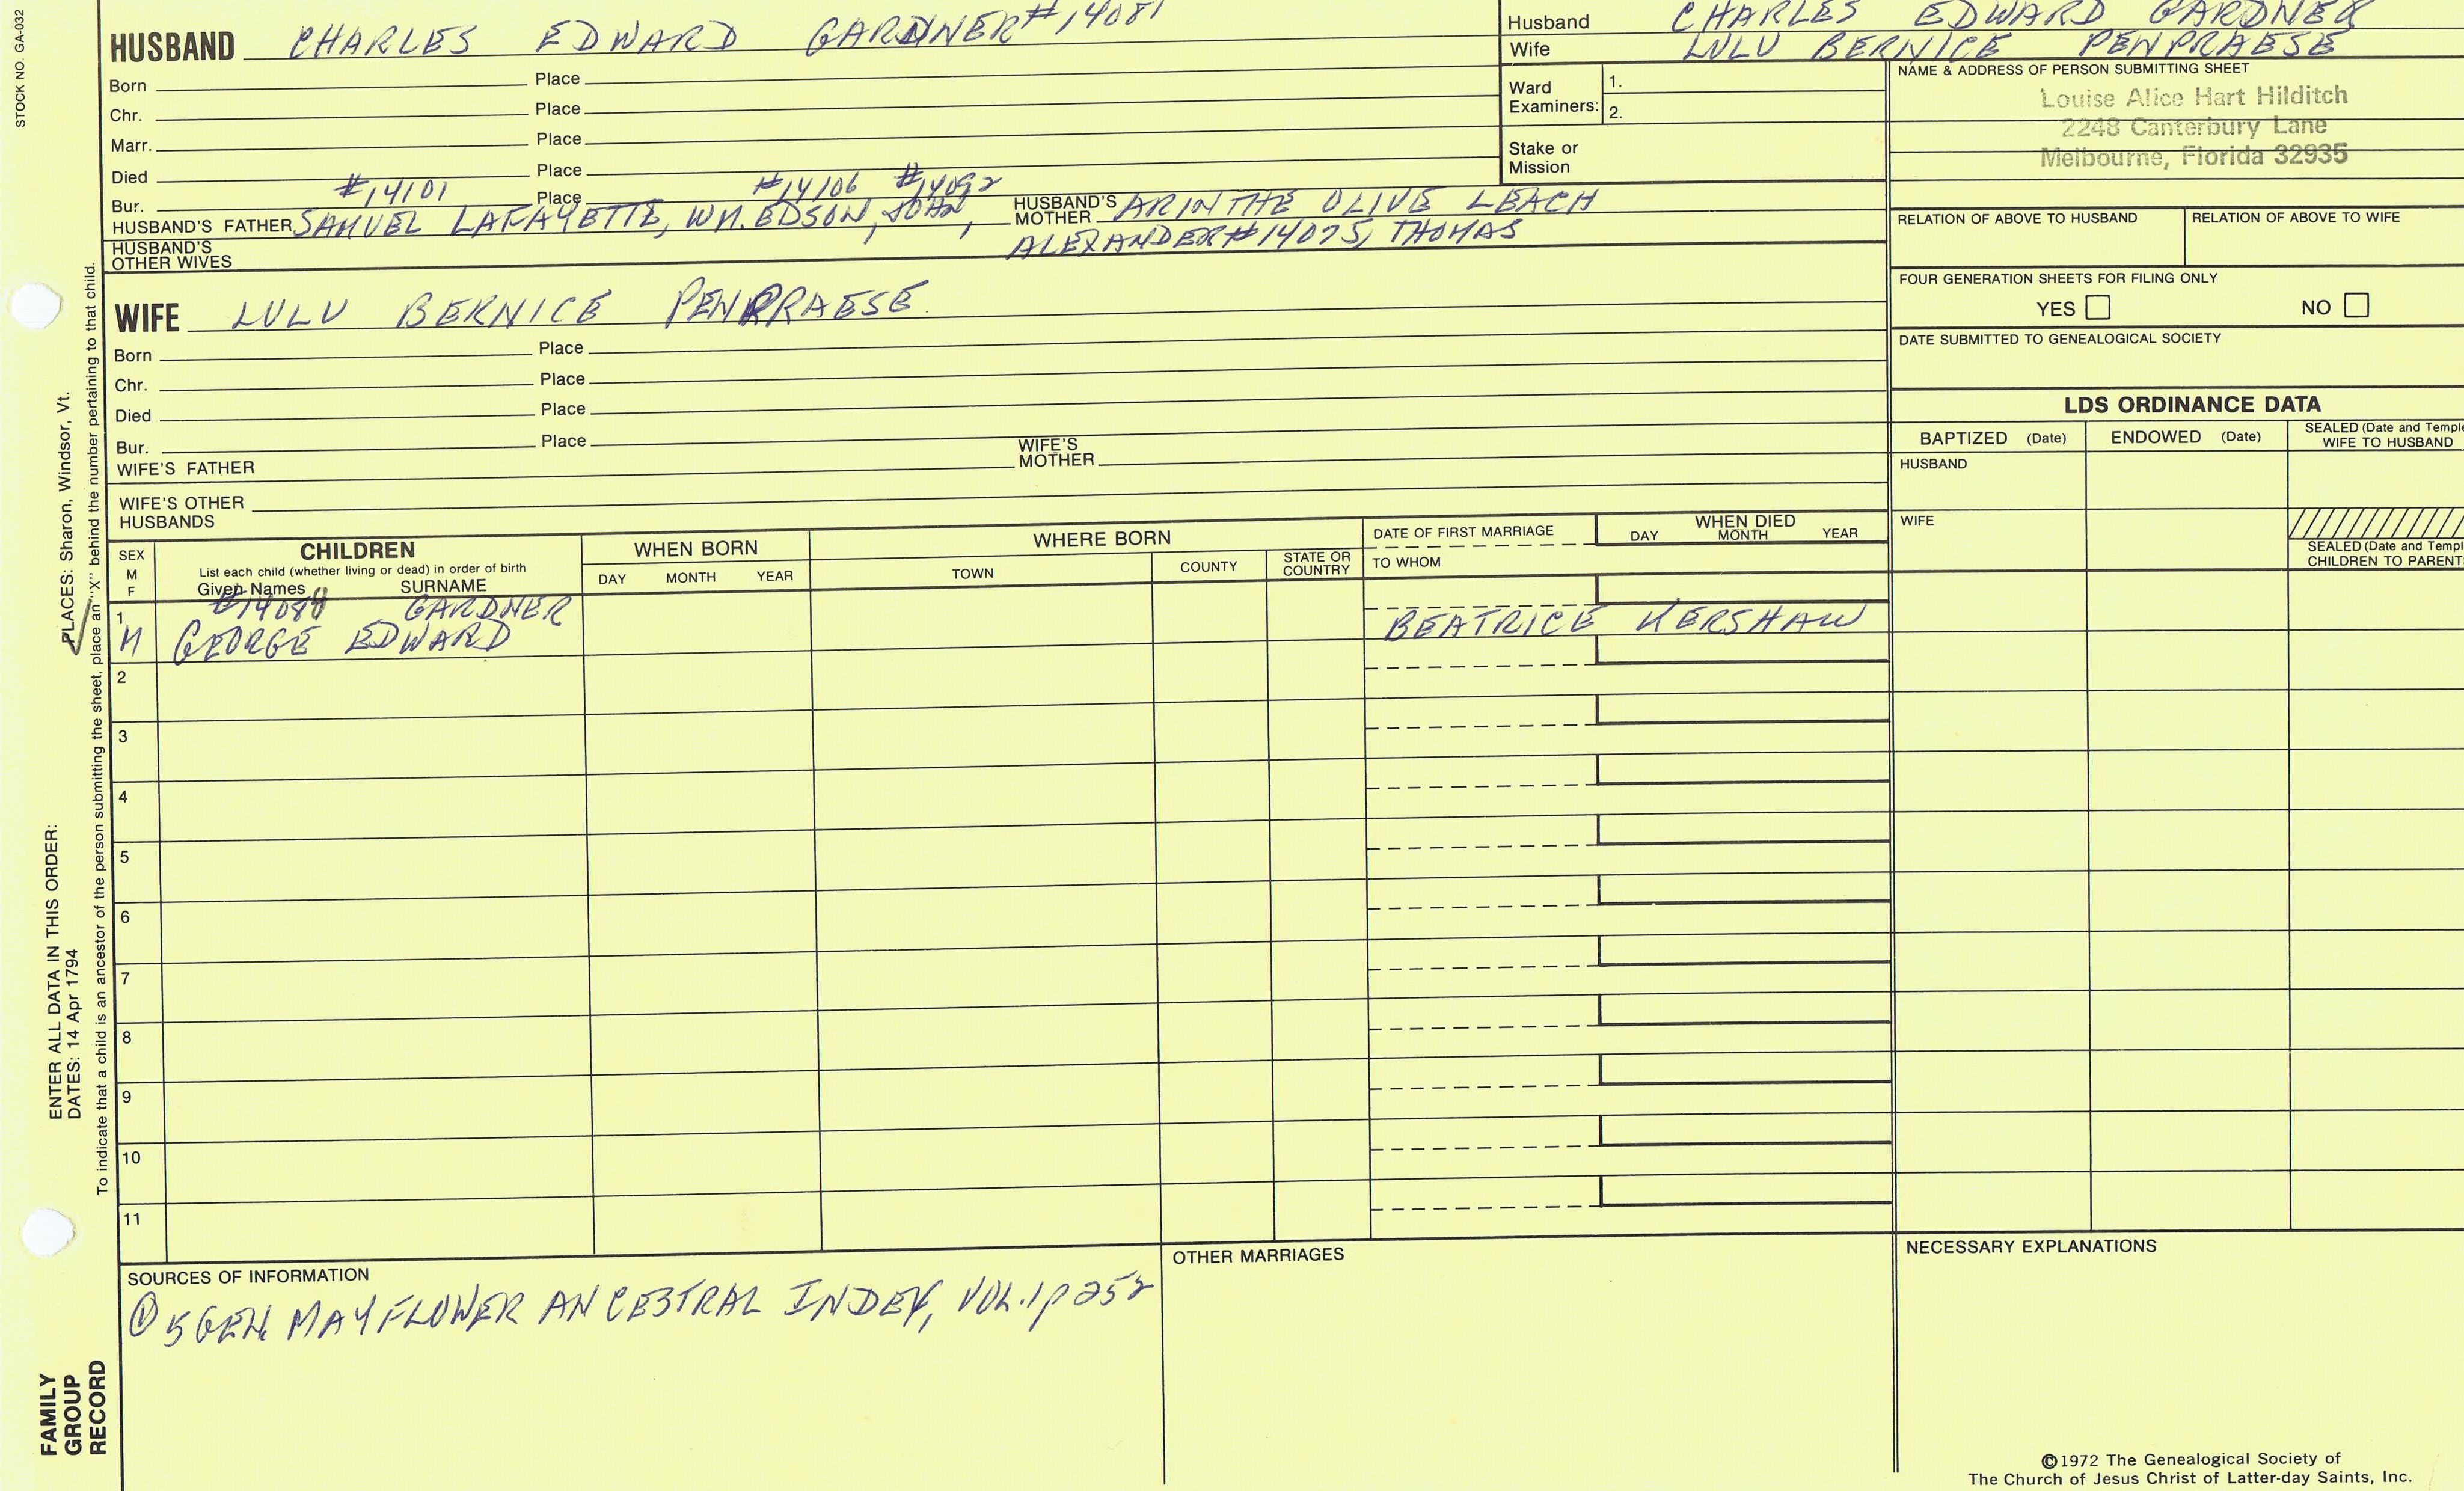 STOCK NO. GA-032
HUSBAND CHARLES EDWARD GARDNER #14081
Born Place
Chr. Place
Marr. Place
Died Place
#14101 #14106 #14092
Bur. Place
HUSBAND'S FATHER SAMUEL LAFAYETTE, WM. EDSON, JOHN, HUSBAND'S MOTHER ARINTHE OLIVE LEACH
ALEXANDER #14075, THOMAS
HUSBAND'S OTHER WIVES
WIFE LULU BERNICE PENPRAESE
Born Place
Chr. Place
Died Place
Bur. Place
WIFE'S FATHER WIFE'S MOTHER
WIFE'S OTHER HUSBANDS
Husband CHARLES EDWARD GARDNER
Wife LULU BERNICE PENPRAESE
Ward Examiners: 1.
2.
Stake or Mission
NAME & ADDRESS OF PERSON SUBMITTING SHEET
Louise Alice Hart Hilditch
2248 Canterbury Lane
Melbourne, Florida 32935
RELATION OF ABOVE TO HUSBAND RELATION OF ABOVE TO WIFE
FOUR GENERATION SHEETS FOR FILING ONLY
YES NO
DATE SUBMITTED TO GENEALOGICAL SOCIETY
LDS ORDINANCE DATA
BAPTIZED (Date) ENDOWED (Date) SEALED (Date and Temple
WIFE TO HUSBAND
HUSBAND
WIFE
SEALED (Date and Templ
CHILDREN TO PARENT
SEX M F
CHILDREN
List each child (whether living or dead) in order of birth
Given Names SURNAME
WHEN BORN
DAY MONTH YEAR
WHERE BORN
TOWN COUNTY STATE OR COUNTRY
DATE OF FIRST MARRIAGE
TO WHOM
WHEN DIED
DAY MONTH YEAR
1 #14084 GARDNER
M GEORGE EDWARD BEATRICE KERSHAW
2
3
4
5
6
7
8
9
10
11
SOURCES OF INFORMATION
① 5 GEN. MAYFLOWER ANCESTRAL INDEX, VOL. 1 P 252
OTHER MARRIAGES
NECESSARY EXPLANATIONS
©1972 The Genealogical Society of
The Church of Jesus Christ of Latter-day Saints, Inc.
FAMILY
GROUP
RECORD
ENTER ALL DATA IN THIS ORDER:
DATES: 14 Apr 1794
PLACES: Sharon, Windsor, Vt.
To indicate that a child is an ancestor of the person submitting the sheet, place an "X" behind the number pertaining to that child.